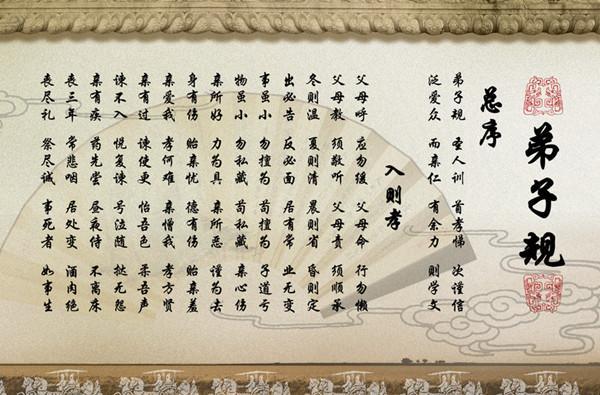 弟子规
总序
弟子规 圣人训 首孝悌 次谨信
泛爱众 而亲仁 有余力 则学文
入则孝
父母呼 应勿缓 父母命 行勿懒
父母教 须敬听 父母责 须顺承
冬则温 夏则清 晨则省 昏则定
出必告 反必面 居有常 业无变
事虽小 勿擅为 苟擅为 子道亏
物虽小 勿私藏 苟私藏 亲心伤
亲所好 力为具 亲所恶 谨为去
身有伤 贻亲忧 德有伤 贻亲羞
亲爱我 孝何难 亲憎我 孝方贤
亲有过 谏使更 怡吾色 柔吾声
谏不入 悦复谏 号泣随 挞无怨
亲有疾 药先尝 昼夜侍 不离床
丧三年 常悲咽 居处变 酒肉绝
丧尽礼 祭尽诚 事死者 如事生